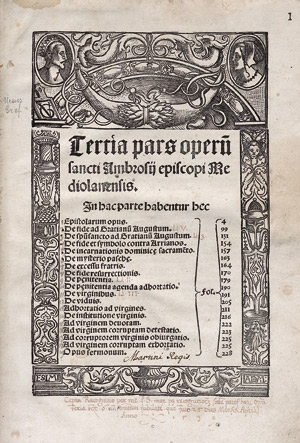 1
Tertia pars operū
sancti Ambrosij episcopi Me
diolanensis.
In hac parte habentur hec
Epistolarum opus. 4
De fide ad Gratianū Augustum. 99
De spūsancto ad Gratianū Augustum. 131
De fide et symbolo contra Arrianos. 154
De incarnationis dominice sacramēto. 157
De mysterio pasche. 163
De excessu fratris. 164
De fide resurrectionis. 170
De penitentia. 179
De penitentia agenda adhortatio. 190
De virginibus. 191
De viduis. 205
Adhortatio ad virgines. 211
De institutione virginis. 216
Ad virginem deuotam. 222
Ad virginem corruptam detestatio. 223
Ad corruptorem virginis obiurgatio. 225
Ad virginem corruptam exhortatio. 226
Opus sermonum. 228
fol.
Martini Regis